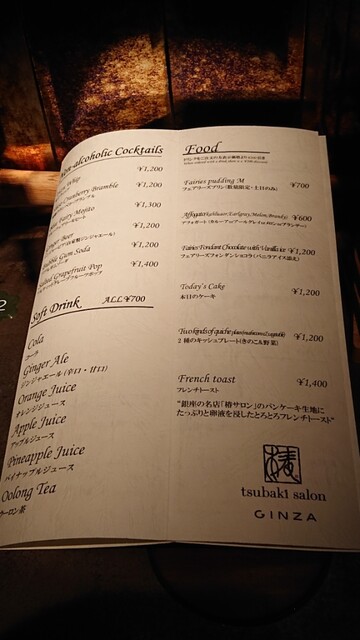 Non-alcoholic Cocktails
¥1,200
Cranberry Bramble ¥1,200
Mojito ¥1,300
Beer ¥1,200
Gum Soda ¥1,200
Salted Grapefruit Pop ¥1,400
Soft Drink ALL ¥700
Cola
コーラ
Ginger Ale
ジンジャエール(辛口・甘口)
Orange Juice
オレンジジュース
Apple Juice
アップルジュース
Pineapple Juice
パイナップルジュース
Oolong Tea
ウーロン茶
Food
Fairies pudding M ¥700
フェアリーズプリン(数量限定・土日のみ)
Affogato ¥600
Fairies Fondant Chocolate with Vanilla ice ¥1,200
フェアリーズフォンダンショコラ(バニラアイス添え)
Today's Cake ¥1,200
本日のケーキ
Two kinds of quiche plate ¥1,200
2種のキッシュプレート(きのこ&野菜)
French toast ¥1,400
フレンチトースト
"銀座の名店「椿サロン」のパンケーキ生地に
たっぷりと卵液を浸したとろとろフレンチトースト"
tsubaki salon
GINZA